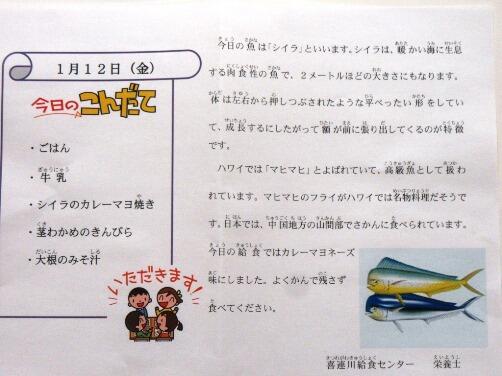 1月12日（金）
今日のこんだて
・ごはん
・牛乳
・シイラのカレーマヨ焼き
・茎わかめのきんぴら
・大根のみそ汁
いただきます！
今日の魚は「シイラ」といいます。シイラは、暖かい海に生息
する肉食性の魚で、2メートルほどの大きさにもなります。
体は左右から押しつぶされたような平べったい形をしてい
て、成長するにしたがって額が前に張り出してくるのが特徴
です。
ハワイでは「マヒマヒ」とよばれていて、高級魚として扱わ
れています。マヒマヒのフライがハワイでは名物料理だそうで
す。日本では、中国地方の山間部でさかんに食べられています。
今日の給食ではカレーマヨネーズ
味にしました。よくかんで残さず
食べてください。
喜連川給食センター　栄養士